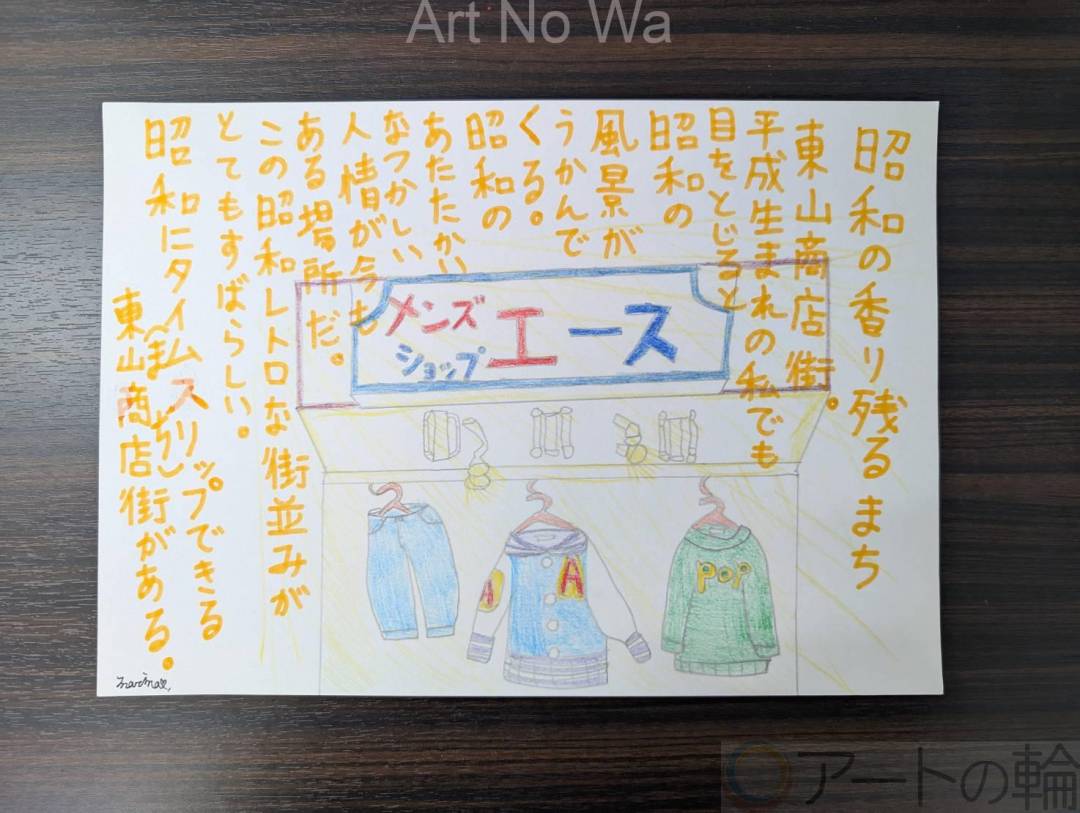 Art No Wa
昭和の香り残るまち
東山商店街。
平成生まれの私でも
目をとじると
昭和の
風景が
うかんで
くる。
昭和の
あたたかい
なつかしい
人情が今も
ある場所だ。
この昭和レトロな街並みが
とてもすばらしい。
昭和にタイムスリップできる
東山商店街がある。
メンズ
ショップ
エース
A
A
POP
アートの輪